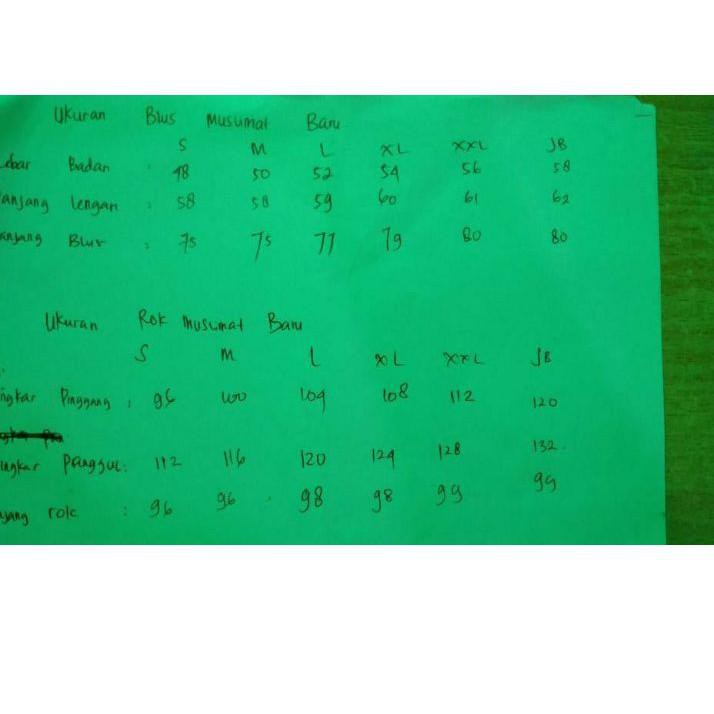 Ukuran Blus Musumat Baru
S M L XL XXL JB
ebar Badan : 48 50 52 54 56 58
anjang lengan : 58 58 59 60 61 62
anjang Blus : 75 75 77 79 80 80
Ukuran Rok Musumat Baru
S M L XL XXL JB
ngkar Pinggang : 96 100 104 108 112 120
ingkar Panggul : 112 116 120 124 128 132
jang rok : 96 96 98 98 99 99